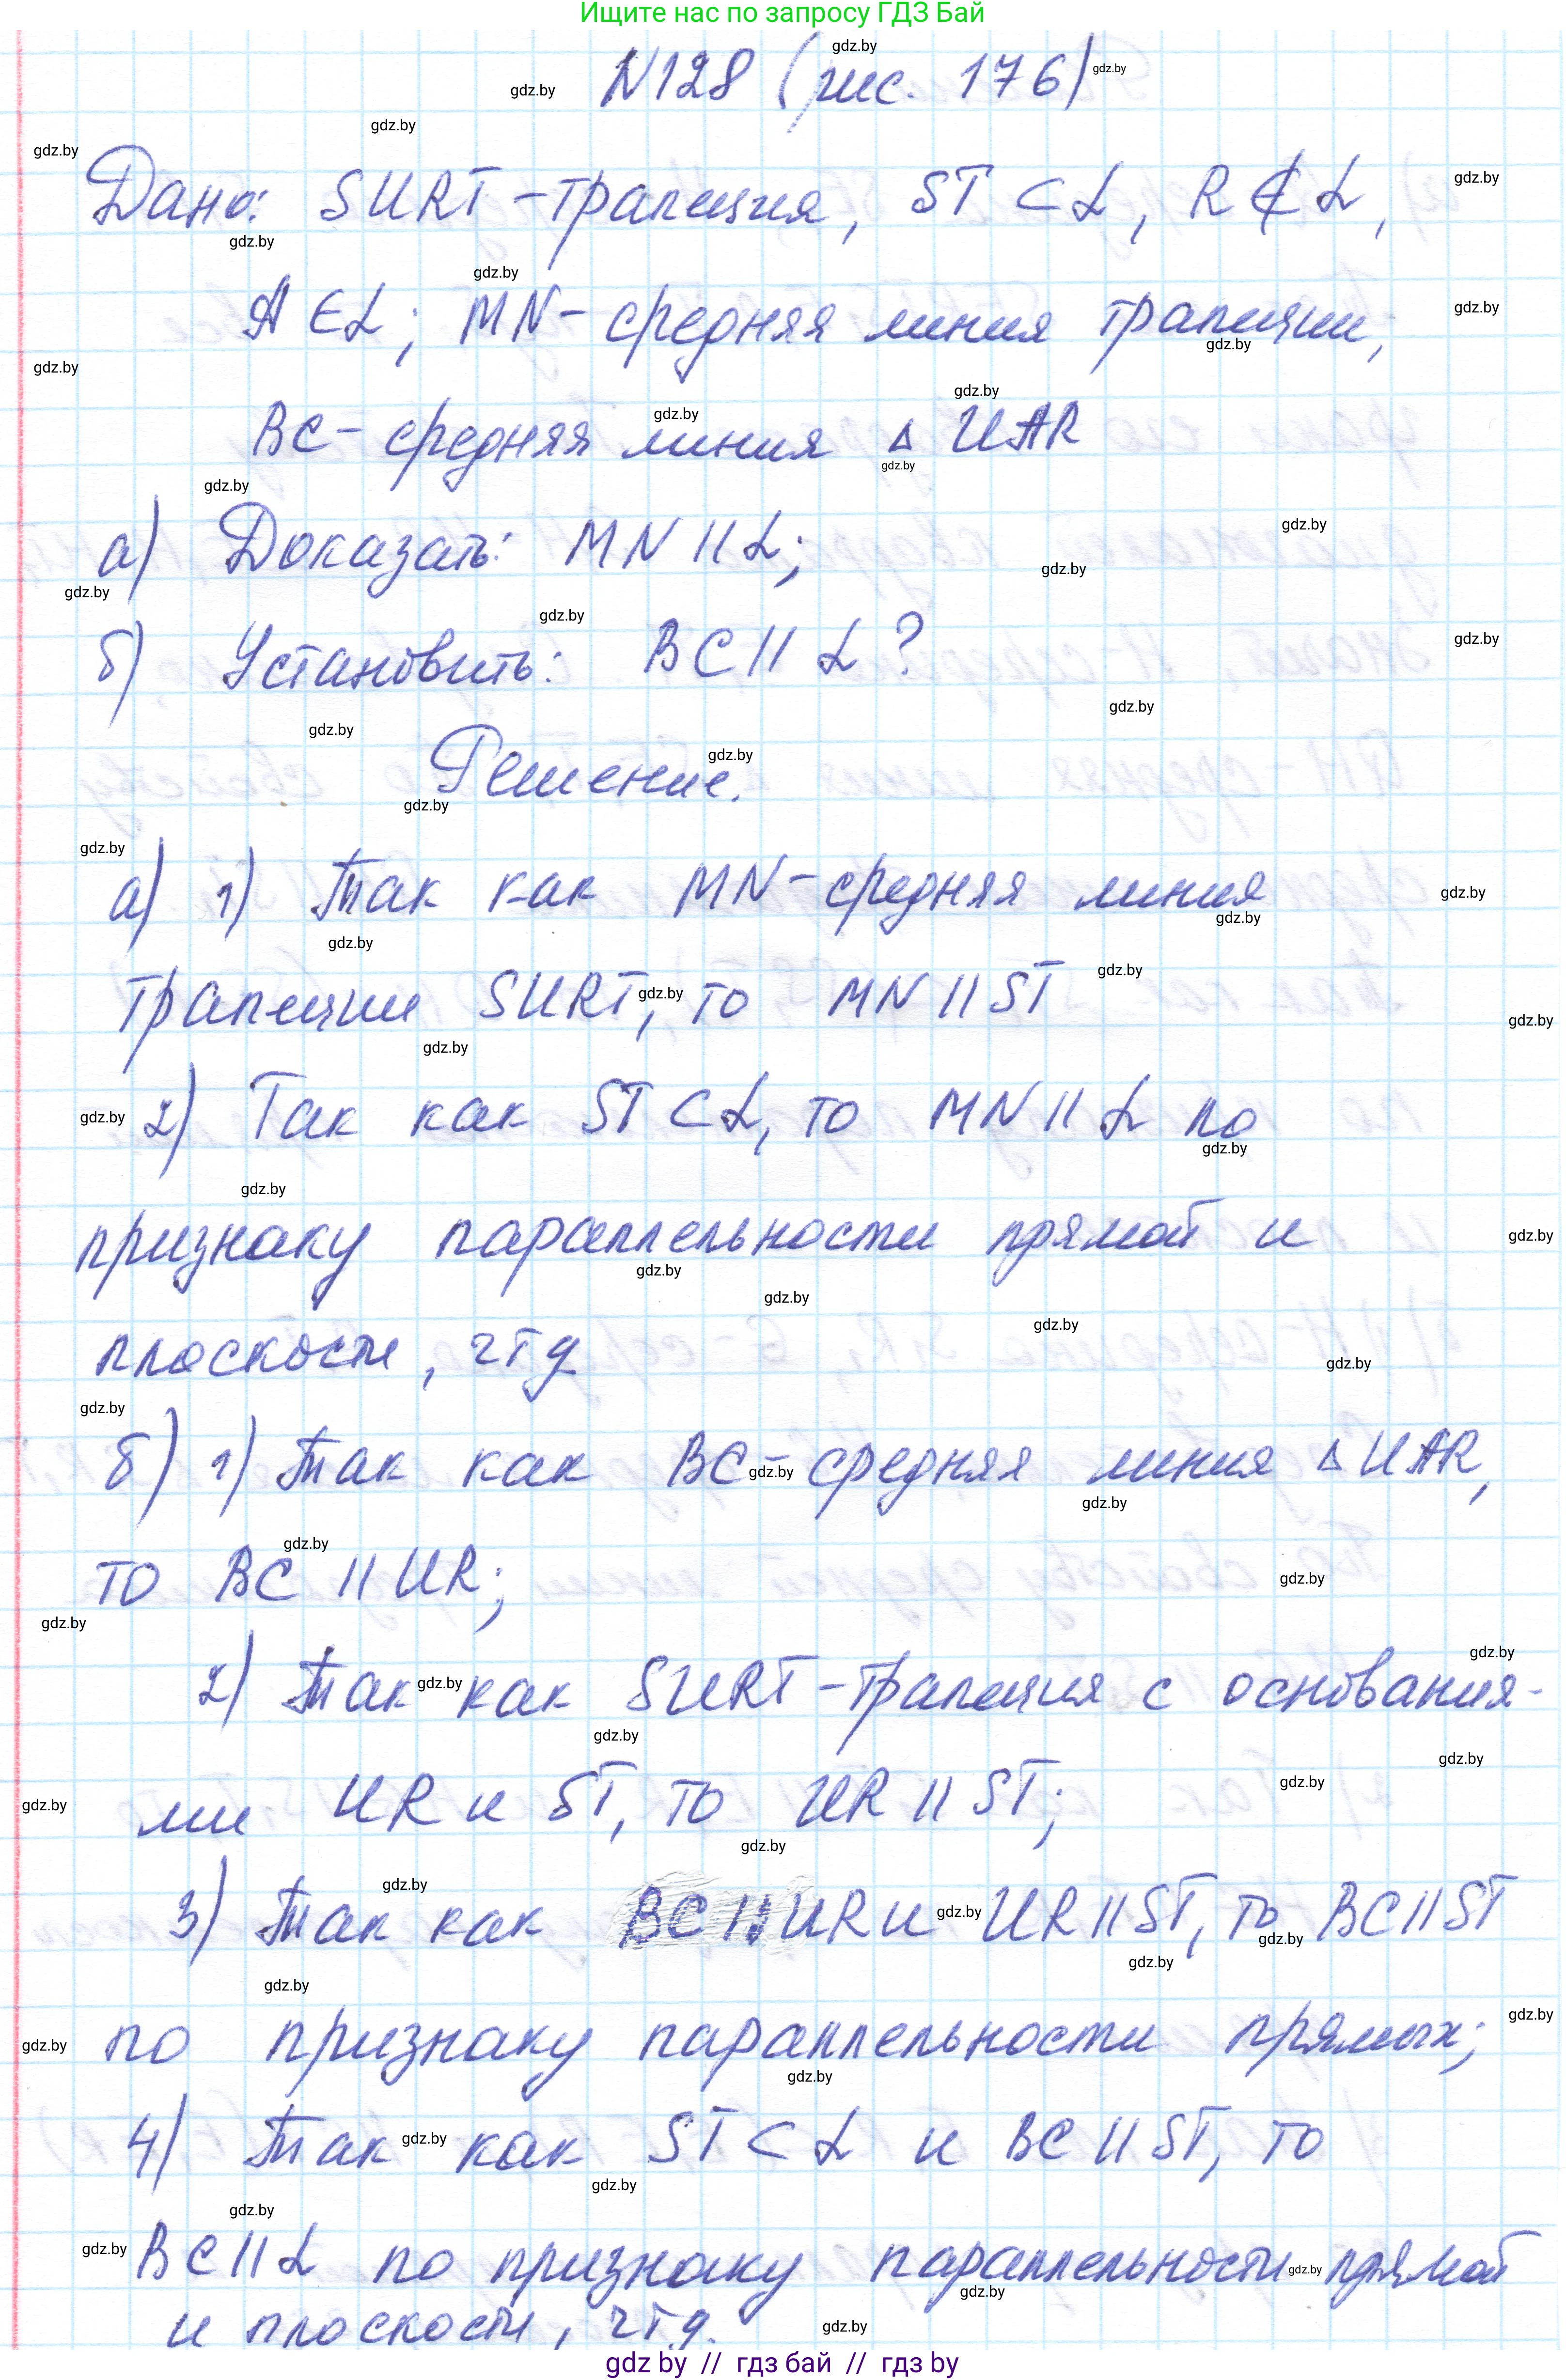 Ищите нас по запросу ГДЗ Бай
N128 (рис. 176)
Дано: SURT - трапеция, ST ⊂ α, R ∉ α,
A ∈ α; MN - средняя линия трапеции,
BC - средняя линия Δ UAR
а) Доказать: MN || α;
б) Установить: BC || α?
Решение.
а) 1) Так как MN - средняя линия
трапеции SURT, то MN || ST
2) Так как ST ⊂ α, то MN || α по
признаку параллельности прямой и
плоскости, чтд
б) 1) Так как BC - средняя линия Δ UAR,
то BC || UR;
2) Так как SURT - трапеция с основания-
ми UR и ST, то UR || ST;
3) Так как BC || UR и UR || ST, то BC || ST
по признаку параллельности прямых;
4) Так как ST ⊂ α и BC || ST, то
BC || α по признаку параллельности прямой
и плоскости, чтд.
gdz by // гдз бай // гдз by